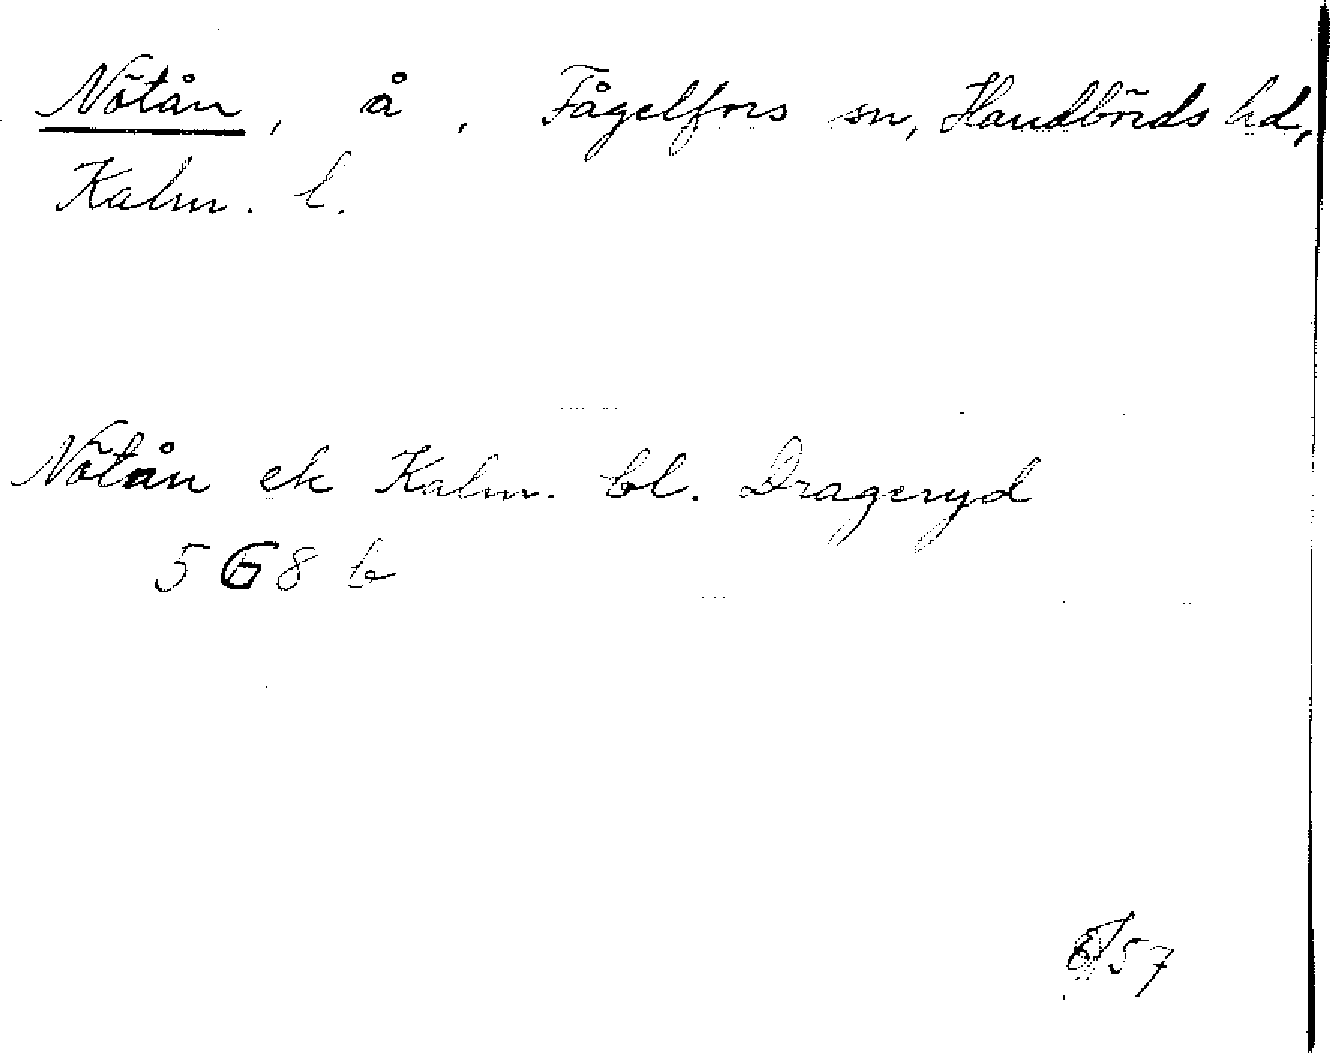 Nötån, å, Fågelfors sn, Handbörds hd,
Kalm. l.
Nötån ek Kalm. bl. Drageryd
5 G 8 b
57